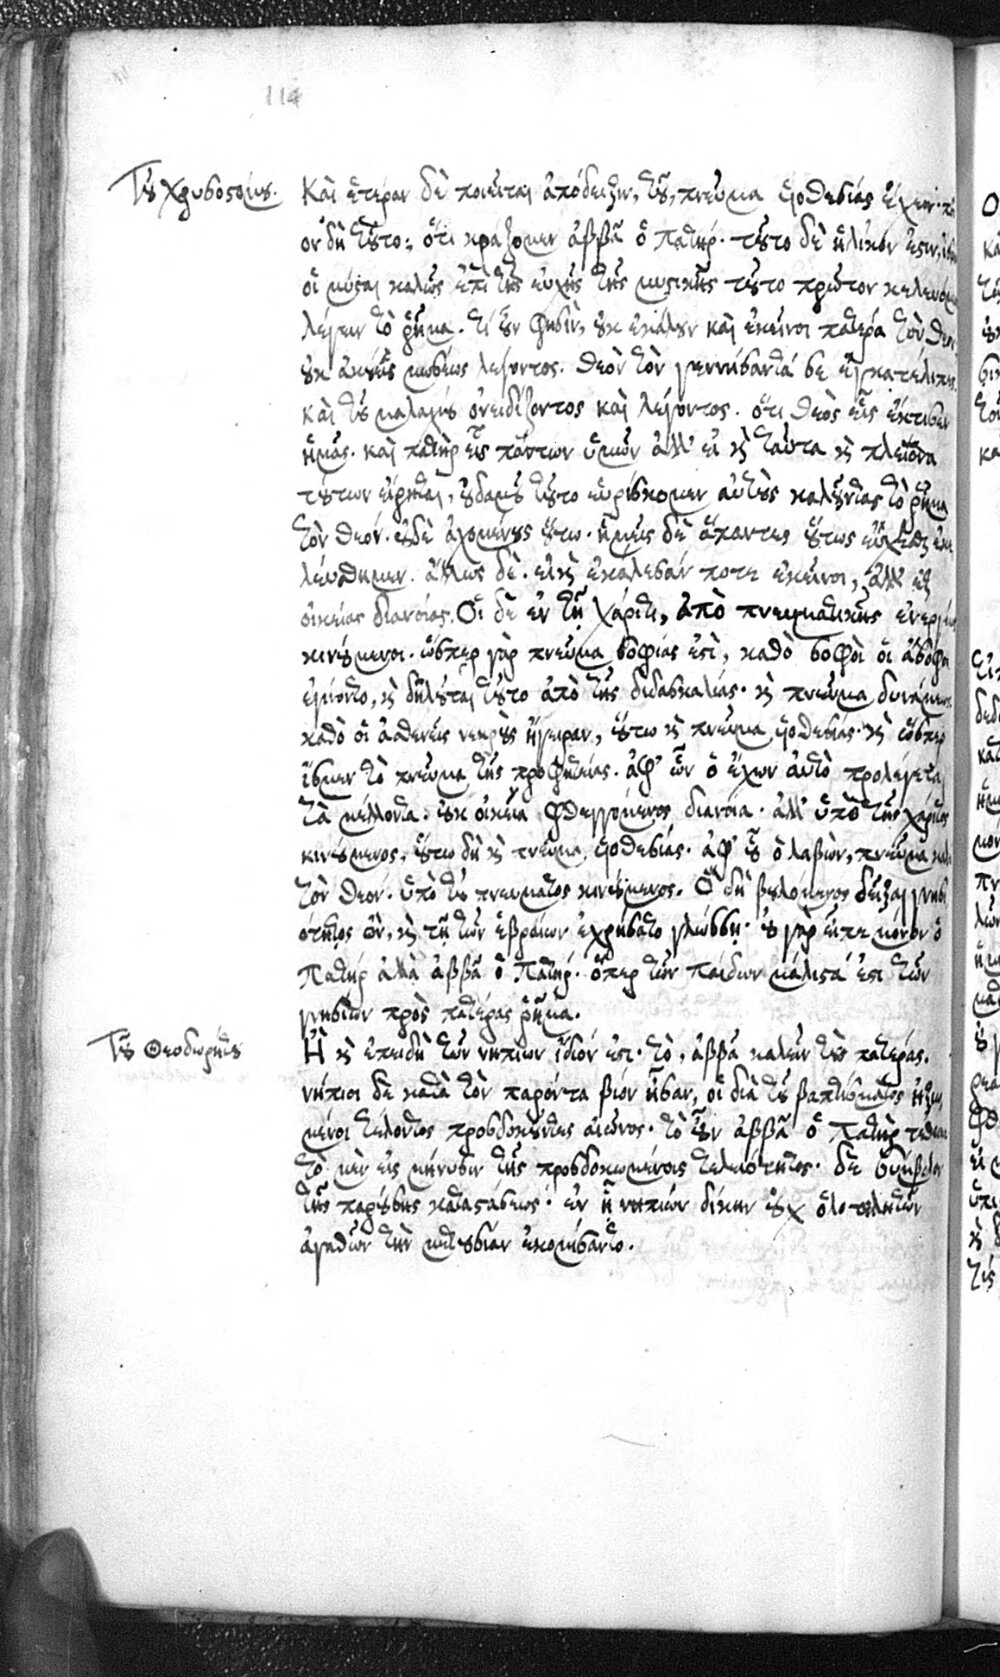 114
Τοῦ Χρυσοστόμου. Καὶ ἑτέραν δὲ ποιεῖται ἀπόδειξιν, τοῦ, πνεῦμα υἱοθεσίας ἔχειν.
ον δὴ τοῦτο; ὅτι κράζομεν ἀββᾶ ὁ πατήρ. τοῦτο δὲ ἡλίκον ἐστιν,
οἱ μύσται καλῶς ἐπὶ τῆς εὐχῆς τῆς μυστικῆς τοῦτο πρῶτον κελευόμε
λέγειν τὸ ῥῆμα. τί οὖν φησὶν, οὐκ ἐκάλουν καὶ ἐκεῖνοι πατέρα τὸν θεόν
οὐκ ἀκούεις μωσέως λέγοντος. θεὸν τὸν γεννήσαντά σε ἐγκατέλιπες.
καὶ τοῦ μαλαχίου ὀνειδίζοντος καὶ λέγοντος. ὅτι θεὸς εἷς ἔκτισεν
ἡμᾶς. καὶ πατὴρ εἷς πάντων ὑμῶν ἀλλ' εἰ καὶ ταῦτα καὶ πλείονα
τούτων εἴρηται, οὐδαμοῦ τοῦτο εὑρίσκομεν αὐτοὺς καλοῦντας τὸ ῥῆμα
τὸν θεόν. οὐδὲ εὐχομένους οὕτω. ἡμεῖς δὲ ἅπαντες οὕτως εὔχεσθαι ἐκε
λεύσθημεν. ἄλλως δὲ. εἰ καὶ ἐκάλεσάν ποτε ἐκεῖνοι, ἀλλ' ἐξ
οἰκείας διανοίας. Οἱ δὲ ἐν τῇ χάριτι, ἀπὸ πνευματικῆς ἐνεργείας
κινούμενοι. ὥσπερ γὰρ πνεῦμα σοφίας ἐστὶ, καθὸ σοφοὶ οἱ ἄσοφοι
ἐγένοντο, καὶ δηλοῦται τοῦτο ἀπὸ τῆς διδασκαλίας. καὶ πνεῦμα δυνάμεως
καθὸ οἱ ἀσθενεῖς νεκροὺς ἤγειραν, οὕτω καὶ πνεῦμα υἱοθεσίας. καὶ ὥσπερ
ἴσμεν τὸ πνεῦμα τῆς προφητείας. ἀφ' ὧν ὁ ἔχων αὐτὸ προλέγεται
τὰ μέλλοντα. οὐκ οἰκείᾳ φθεγγόμενος διανοίᾳ. ἀλλ' ὑπὸ τῆς χάριτος
κινούμενος, οὕτω δὴ καὶ πνεῦμα υἱοθεσίας. ἀφ' οὗ ὁ λαβὼν, πνεῦμα καλεῖ
τὸν θεόν. ὑπὸ τοῦ πνεύματος κινούμενος. Ὃ δὴ βουλόμενος δεῖξαι γνησι
ότητος ὂν, καὶ τῇ τῶν ἑβραίων ἐχρήσατο γλώσσῃ. οὐ γὰρ εἶπε μόνον ὁ
πατὴρ ἀλλὰ ἀββᾶ ὁ πατήρ. ὅπερ τῶν παίδων μάλιστά ἐστι τῶν
γνησίων πρὸς πατέρας ῥῆμα.
Τοῦ Θεοδωρήτου Ἢ καὶ ἐπειδὴ τῶν νηπίων ἴδιόν ἐστι. τὸ, ἀββᾶ καλεῖν τοὺς πατέρας.
νήπιοι δὲ κατὰ τὸν παρόντα βίον ἦσαν, οἱ διὰ τοῦ βαπτίσματος ἠξιω
μένοι προσδοκῶντες αἰῶνος. τὸ οὖν ἀββᾶ ὁ πατὴρ τέθεικε
τὸ μὲν εἰς μήνυσιν τῆς προσδοκωμένης τελειότητος. δὲ σύμβολον
τῆς παρούσης καταστάσεως. ἐν ᾗ νηπίων δίκην οὐχ ὁλοτελῆ τῶν
ἀγαθῶν τὴν μετουσίαν ἐκομίσαντο.